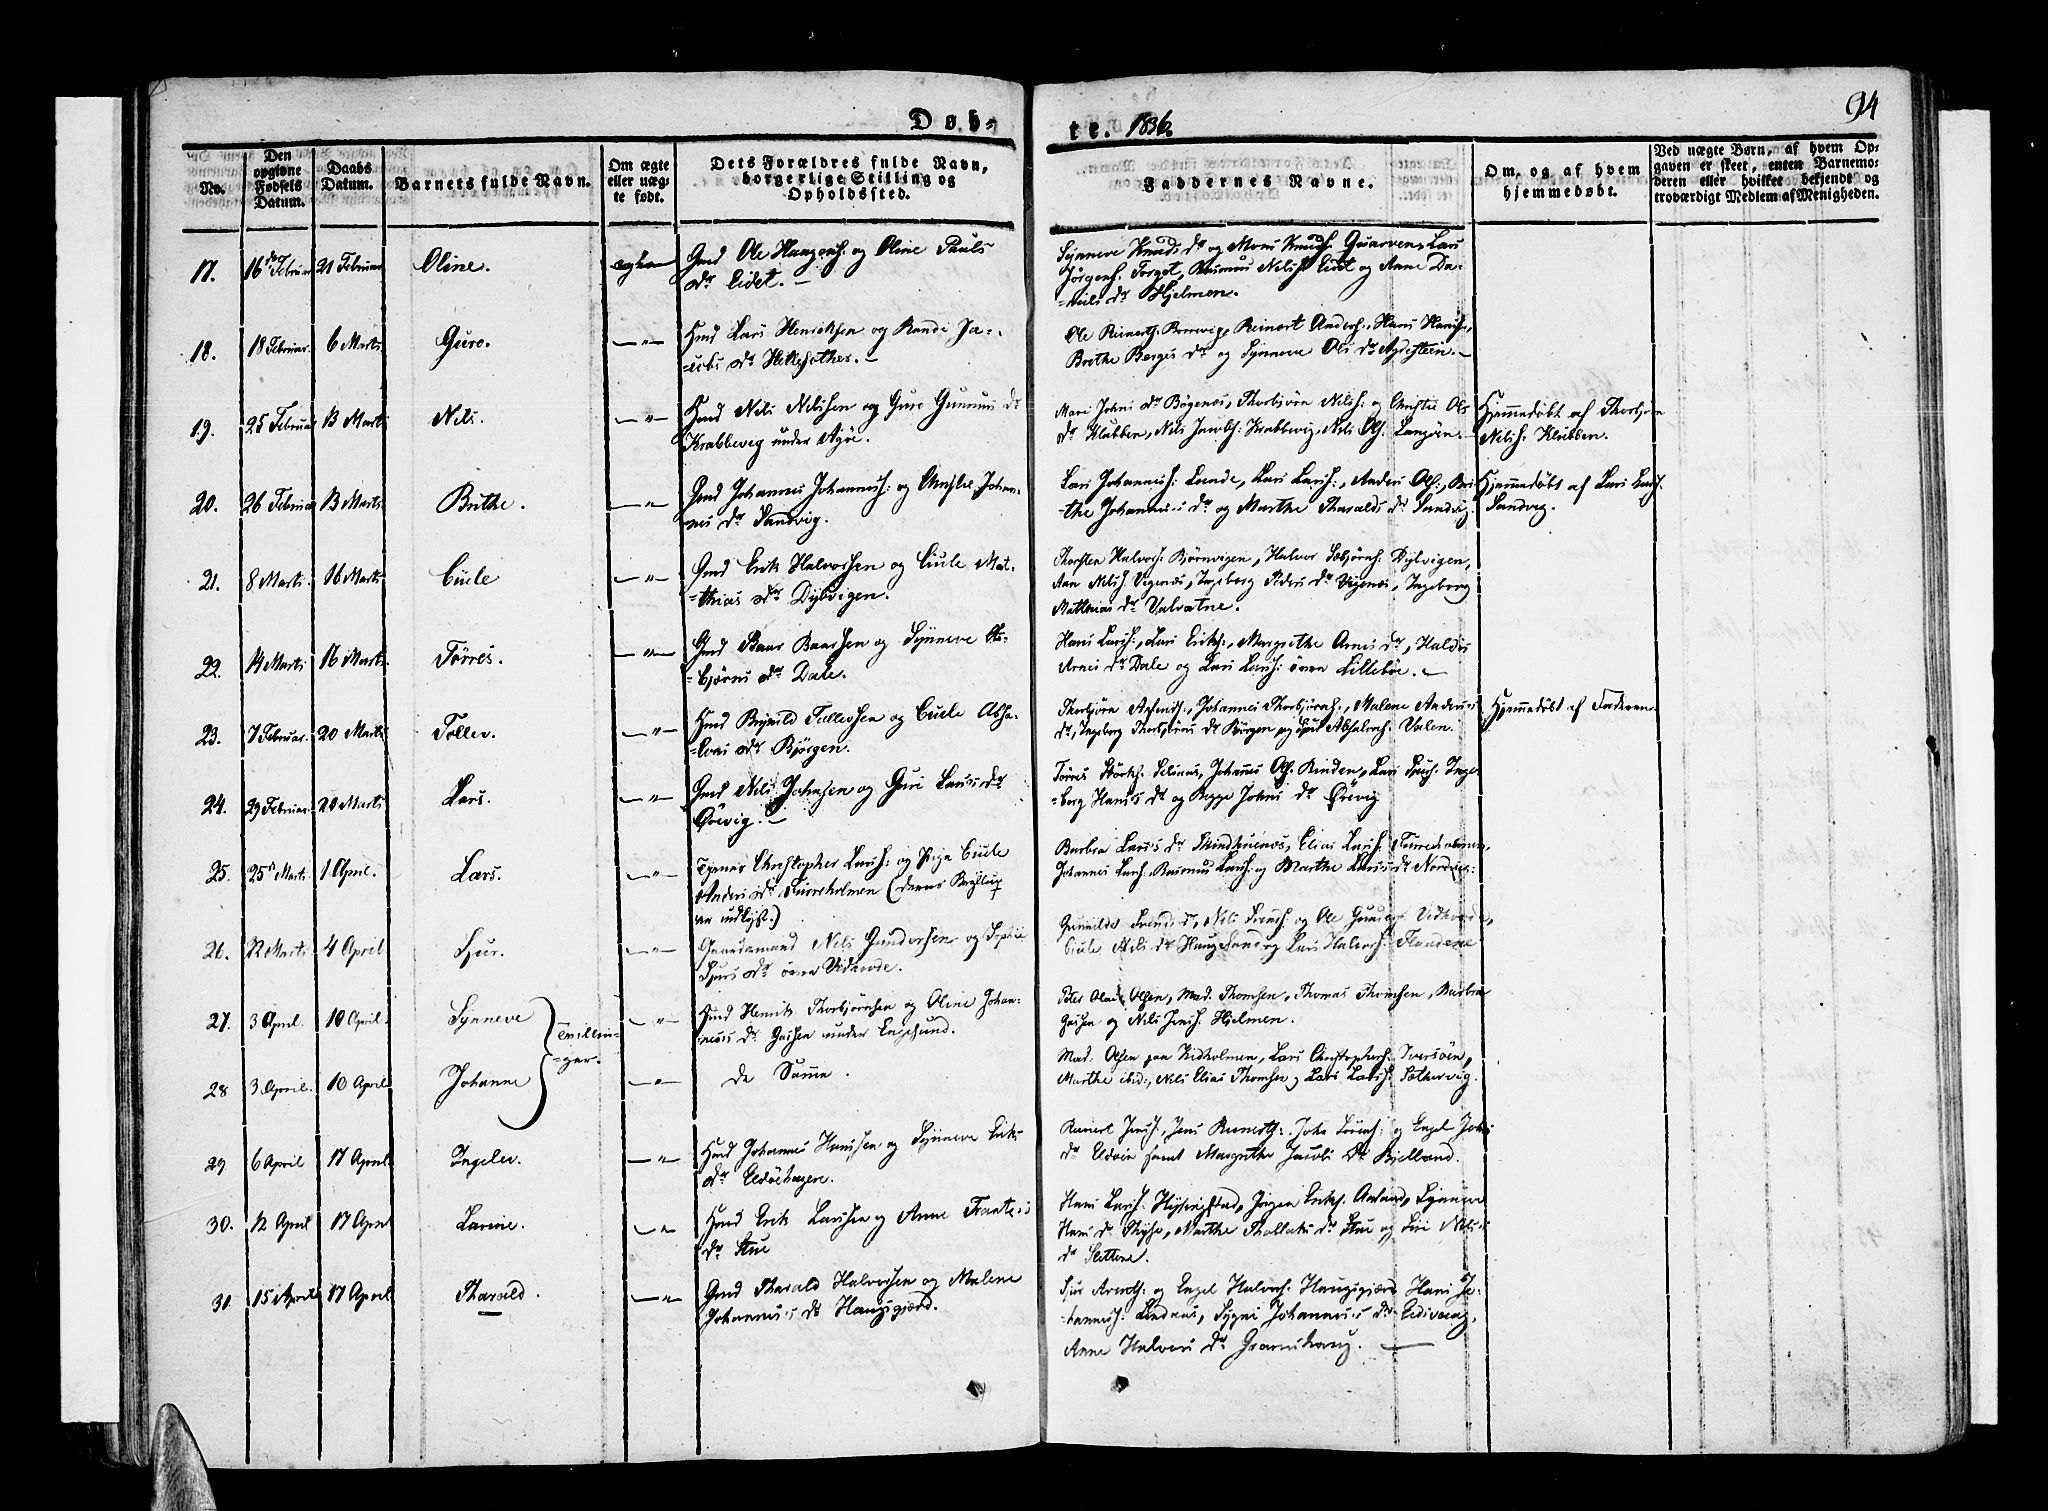 94
Døb-
te. 1836.
No.
Den opgivne Fødsels Datum.
Daabs Datum.
Barnets fulde Navn.
Om ægte eller uægte født.
Dets Forældres fulde Navn, borgerlige Stilling og Opholdssted.
Faddernes Navne.
Om, og af hvem hjemmedøbt.
Ved uægte Børn, af hvem Opgaven er skeet, enten Barnemoderen eller hvilket bekjendt og troværdigt Medlem af Menigheden.
17. 16 Februar 21 Februar Oline. Gmd Ole Haagens. og Oline Pauls
dr Eidet. —
Synneve Knuds dr og Mons Knuds. Lars
Jørgens. Torget, Rasmus Nils. Eidet og Anne Da-
=niels dr Hjelmen.
18. 18 Februar. 6 Marts Guro. —"— Hmd Lars Henriksen og Randi Ja-
=cobs dr
Ole Reinerts. Reinert Anders., Hans Hans.,
Brethe Berges dr og Synneve Ols dr
19. 25 Februar 13 Marts Nils. —"— Hmd Nils Nilssen og Guro Gunnus dr
Krabbevig under Agøe.
Mari Johns dr Bøgenes, Thorbjørn Nils. og Christie Ols
dr Klubben, Nils Jacobs. Krabbevig, Nils Ols. Langøen. —
Hjemmedøbt af Thorbjørn
Nils. Klubben.
20. 26 Februar 13 Marts Brithe. —"— Gmd Johannes Johanness. og Johan-
nes dr Sandvig.
Lars Johanness. Lunde, Lars Lars., Anders Ols., Bri-
=the Johannes's dr og Marthe Tharalds dr Sandvig.
Hjemmedøbt af Lars Lars.
Sandvig.
21. 8 Marts 16 Marts Cicile —"— Gmd Erik Halvorsen og Cicile Mat-
=thias dr Dybvigen.
Thorsten Halvors. Bjørnvigen, Halvor Dybvigen,
Nils. Vigenes, Ingeborg Peders dr Vigenes, Ingeborg
Matthias dr Valvatne.
22. 14 Marts 16 Marts Tørres. —"— Gmd Baar Baarsen og Synneve As-
=bjørns dr Dale.
Hans Lars., Lars Eriks., Margrethe Arnes dr, Haldis
Arnes dr Dale og Lars Lars. øvre Lillebøe. —
23. 7 Februar. 20 Marts Tollev. —"— Hmd Brynild Tollevsen og Cicile Absa-
=lons dr Bjørgen.
Thorbjørn Johannes Thorbjørns., Malene Anders's
dr, Ingeborg Thorbjørns dr Bjørgen og Absalons. Valen.
Hjemmedøbt af Faderen
24. 29 Februar 20 Marts Lars. —"— Gmd Nils Johnsen og Guri Lars's dr
Ørevig. —
Tørres Johannes Ols. Rinden, Lars Inge-
=borg Hans's dr og Johns dr Ørevig
25. 25 Marts 1 April. Lars. —"— Christopher Lars. og Pige Cicile
Anders dr Furreholmen (deres Bryllup
er udlyst.)
Barbra Lars's dr Elias Lars. Furreholmen,
Johannes Lars. Rasmus Lars. og Marthe Lars's dr Nordvig.
26. 22 Marts 4 April Sjur. —"— Gaardmand Nils Gundersen og Sophie
Sjurs dr øvre Vidhovde.
Gunnilde Svends dr, Nils Svends. og Ole Gunders. Vidhovde,
Cicile Nils dr Haugland og Lars Halvors. Flaadene
27. 3 April 10 April. Synneve } Tvillin-
=ger. —"— Hmd Henrik Thorbjørnsen og Oline Johan-
nes's dr Gaasen under Engesund.
Peter Olaus Olsen, Mad. Thomsen, Thomas Thomsen, Barbra
Gaasen og Nils Jens. Hjelmen.
28 3 April. 10 April Johanne —"— De Samme.
Mad. Olsen paa Kidholmen, Lars Christophers. Iversøen,
Marthe ibid., Nils Elias Thomsen og Lars Lars. Sæthervig.
29 6 April 17 April Ingelev. —"— Hmd Johannes Hanssen og Synneve Eriks
dr Eldøehagen.
Reinert Jens., Jens Reinerts. John og Engel Johns
dr Eldøen samt Margrethe Jacobs dr Bielland.
30. 12 April 17 April Larine. —"— Hmd Erik Larssen og Anne Frants's
dr Stue
Hans Lars. Hysingstad, Jørgen Eriks. Synneve
Hans dr Marthe Thollaks dr Stue og Siri Nils's
dr Slettene.
31 15 April 17 April Tharald. —"— Gmd Tharald Halvorsen og Malene
Johannes's dr Haugsgjærd.
Sjur og Engel Halvors. Haugsgjærd Hans Jo-
=hanness. Lindaas, Sygni Johannes's dr Eidsvaag,
Anne Halvors dr —